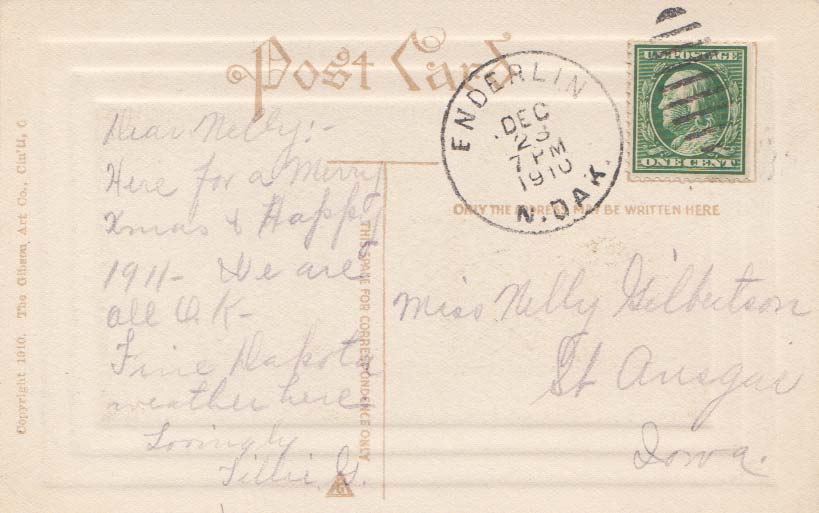 Post Card
ENDERLIN
DEC
23
7 PM
1910
N. DAK.
U.S. POSTAGE
ONE CENT
Dear Nelly:-
Here for a Merry
Xmas & Happy
1911- We are
all O.K-
Fine Dakota
weather here
Lovingly
Tillie G.
THIS SPACE FOR CORRESPONDENCE ONLY
ONLY THE ADDRESS MAY BE WRITTEN HERE
Miss Nelly Gilbertson
St Ansgar
Iowa.
Copyright 1910, The Gibson Art Co., Cin'ti, O